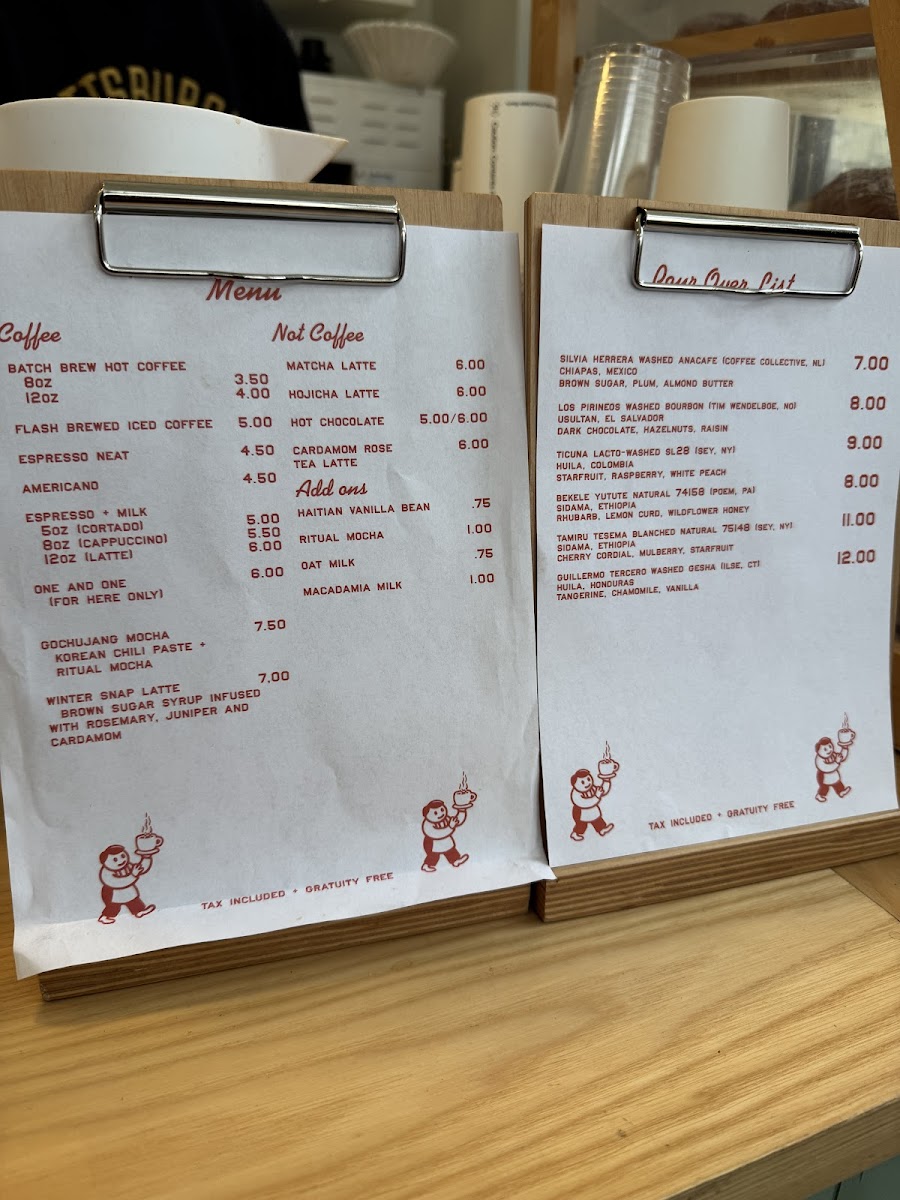 Menu
Coffee
BATCH BREW HOT COFFEE
8OZ 3.50
12OZ 4.00
FLASH BREWED ICED COFFEE 5.00
ESPRESSO NEAT 4.50
AMERICANO 4.50
ESPRESSO + MILK
5OZ (CORTADO) 5.00
8OZ (CAPPUCCINO) 5.50
12OZ (LATTE) 6.00
ONE AND ONE 6.00
(FOR HERE ONLY)
GOCHUJANG MOCHA 7.50
KOREAN CHILI PASTE +
RITUAL MOCHA
WINTER SNAP LATTE 7.00
BROWN SUGAR SYRUP INFUSED
WITH ROSEMARY, JUNIPER AND
CARDAMOM
Not Coffee
MATCHA LATTE 6.00
HOJICHA LATTE 6.00
HOT CHOCOLATE 5.00/6.00
CARDAMOM ROSE 6.00
TEA LATTE
Add ons
HAITIAN VANILLA BEAN .75
RITUAL MOCHA 1.00
OAT MILK .75
MACADAMIA MILK 1.00
TAX INCLUDED + GRATUITY FREE
Pour Over List
SILVIA HERRERA WASHED ANACAFE (COFFEE COLLECTIVE, NL) 7.00
CHIAPAS, MEXICO
BROWN SUGAR, PLUM, ALMOND BUTTER
LOS PIRINEOS WASHED BOURBON (TIM WENDELBOE, NO) 8.00
USULTAN, EL SALVADOR
DARK CHOCOLATE, HAZELNUTS, RAISIN
TICUNA LACTO-WASHED SL28 (SEY, NY) 9.00
HUILA, COLOMBIA
STARFRUIT, RASPBERRY, WHITE PEACH
BEKELE YUTUTE NATURAL 74158 (POEM, PA) 8.00
SIDAMA, ETHIOPIA
RHUBARB, LEMON CURD, WILDFLOWER HONEY
TAMIRU TESEMA BLANCHED NATURAL 75148 (SEY, NY) 11.00
SIDAMA, ETHIOPIA
CHERRY CORDIAL, MULBERRY, STARFRUIT
GUILLERMO TERCERO WASHED GESHA (ILSE, CT) 12.00
HUILA, HONDURAS
TANGERINE, CHAMOMILE, VANILLA
TAX INCLUDED + GRATUITY FREE